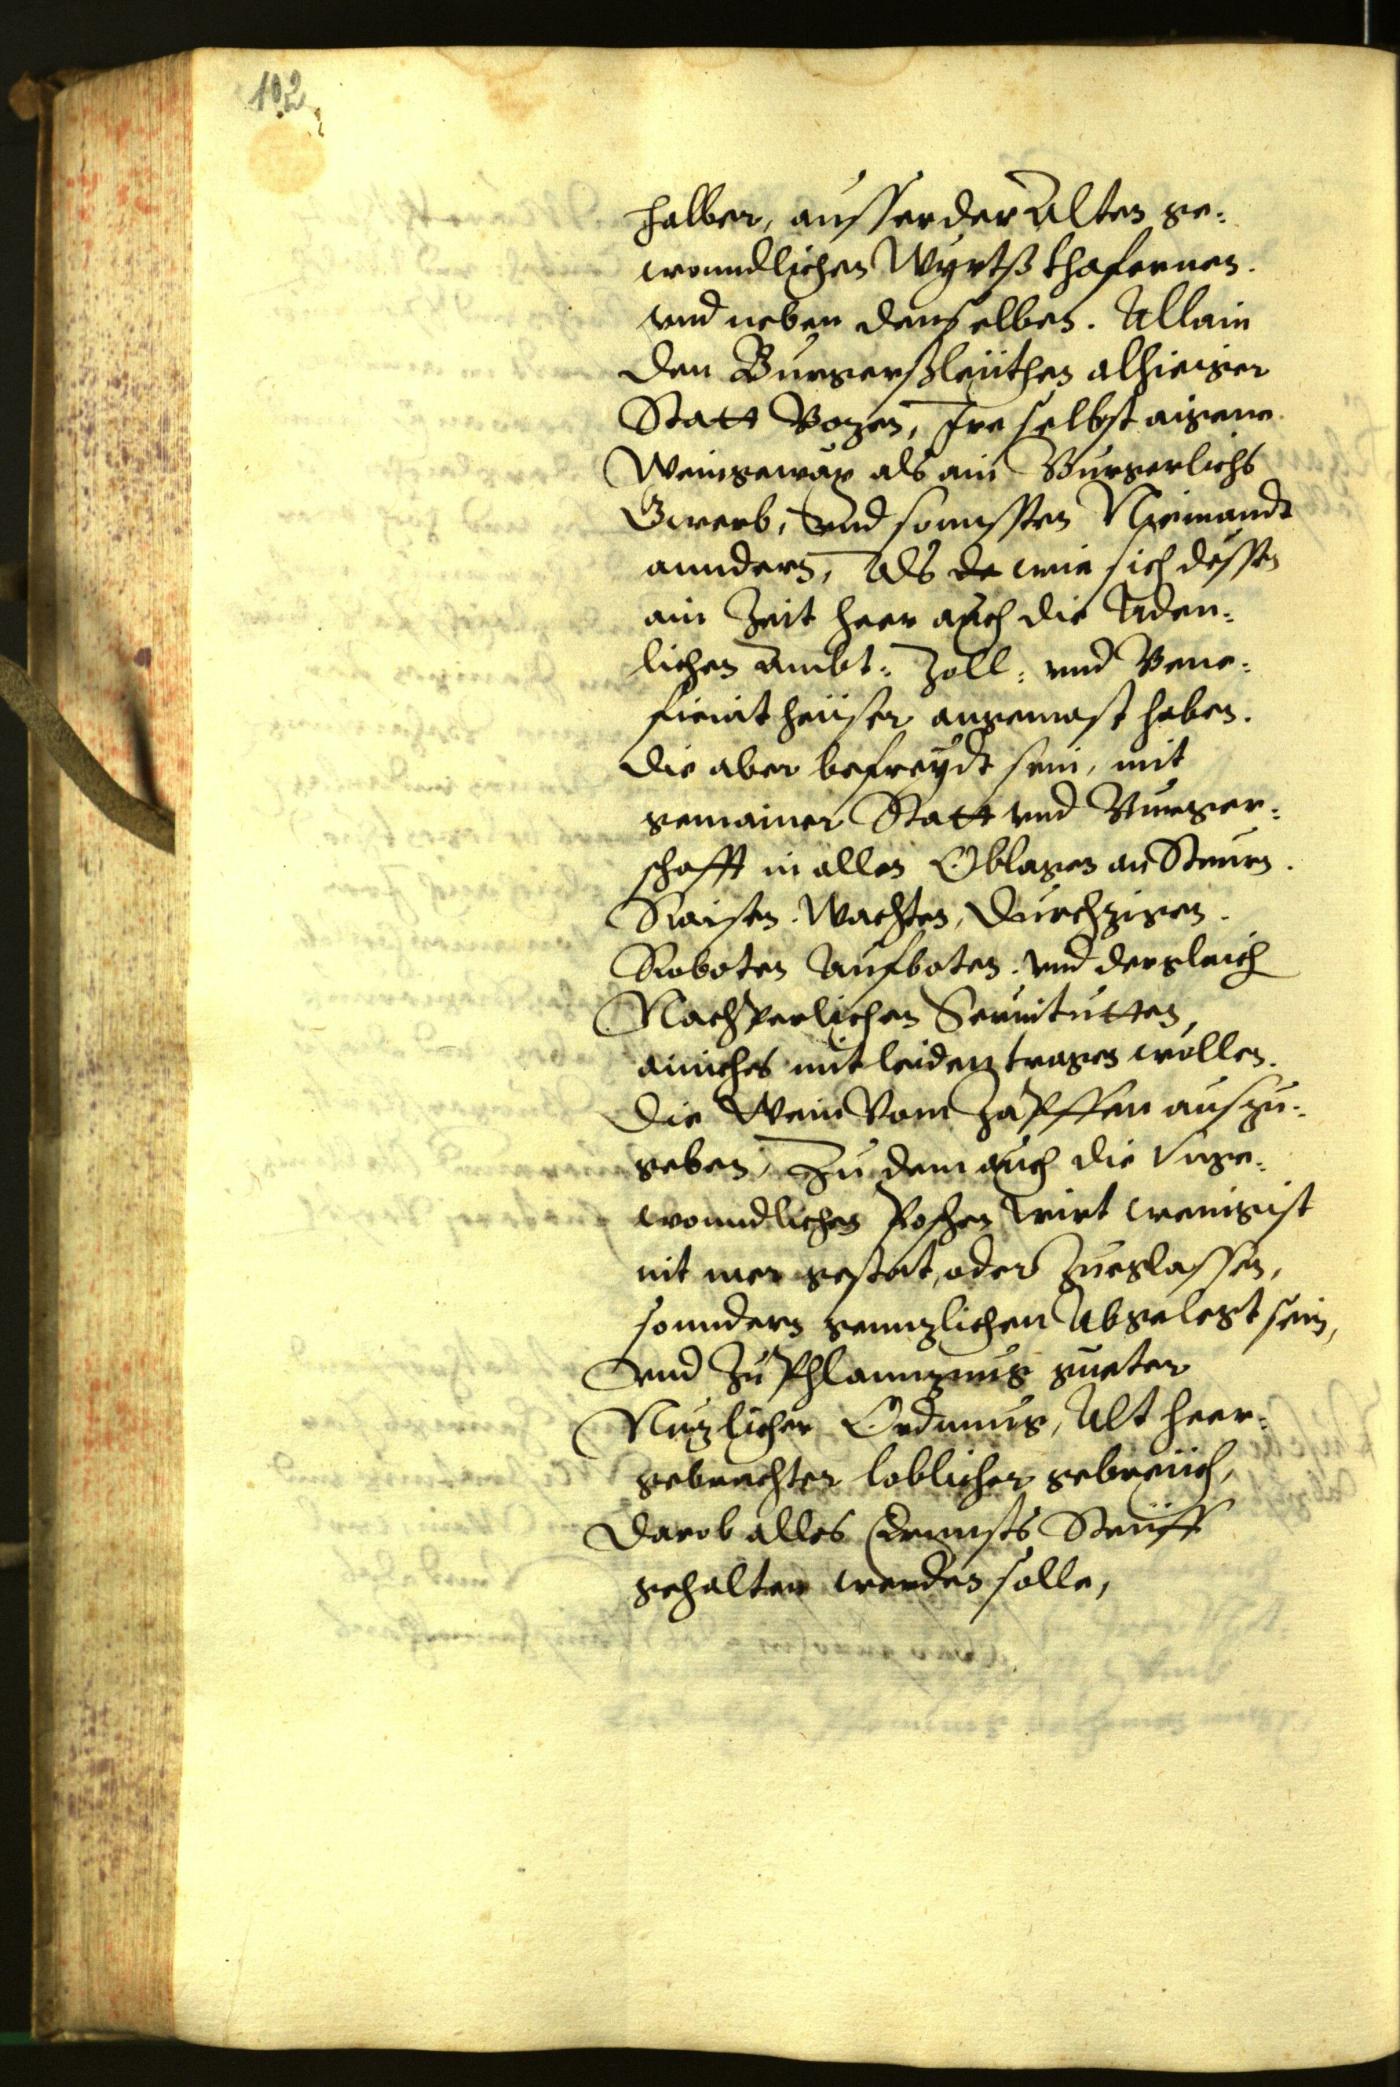 102
halber, ausser der Alten ge¬
wonndlichen Wyrtß thafernen.
vnd neben denselben. Allain
den Burgersßleüthen alhieiger
Statt Bozen, Ire selbst aigene
Weingewäx als ain Burgerlichs
Gwerb, Vnd sonnssten Niemandt
anndern, Als de wie sich dessen
ain Zeit heer auch die Aden¬
lichen Ambt: Zoll: vnd Bene¬
ficiat heüser angemast haben.
die aber befreydt sein, mit
gemainer Statt vnd Burger¬
schafft in allen Oblagen an Steurn.
Raisen. Wachten, Durchzigen.
Roboten Aufboten. vnd dergleich
Nachperlichen Seruitutten,
ainiches mitleiden tragen wöllen.
die Wein Vom Zapffen auszu¬
geben, Zu dem auch die Vnge¬
wonndlichen Poschen Wirt wenigist
nit mer gestat, oder Zuegelassen,
sonndern genzlichen Abgelegt sein,
vnd Zu Phlannzung gueter
Nuzlicher Ordnung, Alt heer¬
gebrachter loblicher gebreüch,
darob alles Ernnsts Steiff
gehalten werden solle,